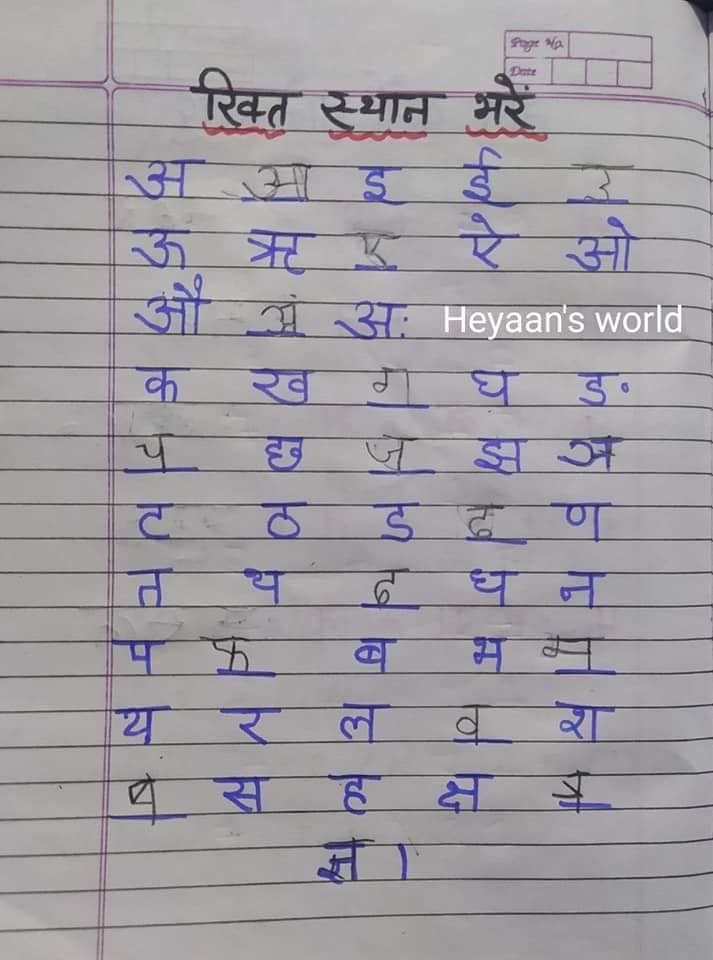 Page No.
Date
रिक्त स्थान भरें
अ आ इ ई उ
ऊ ऋ ए ऐ ओ
औ अं अः Heyaan's world
क ख ग घ ङ
च छ ज झ ञ
ट ठ ड ढ ण
त थ द ध न
प फ ब भ म
य र ल व श
ष स ह क्ष त्र
ज्ञ ।